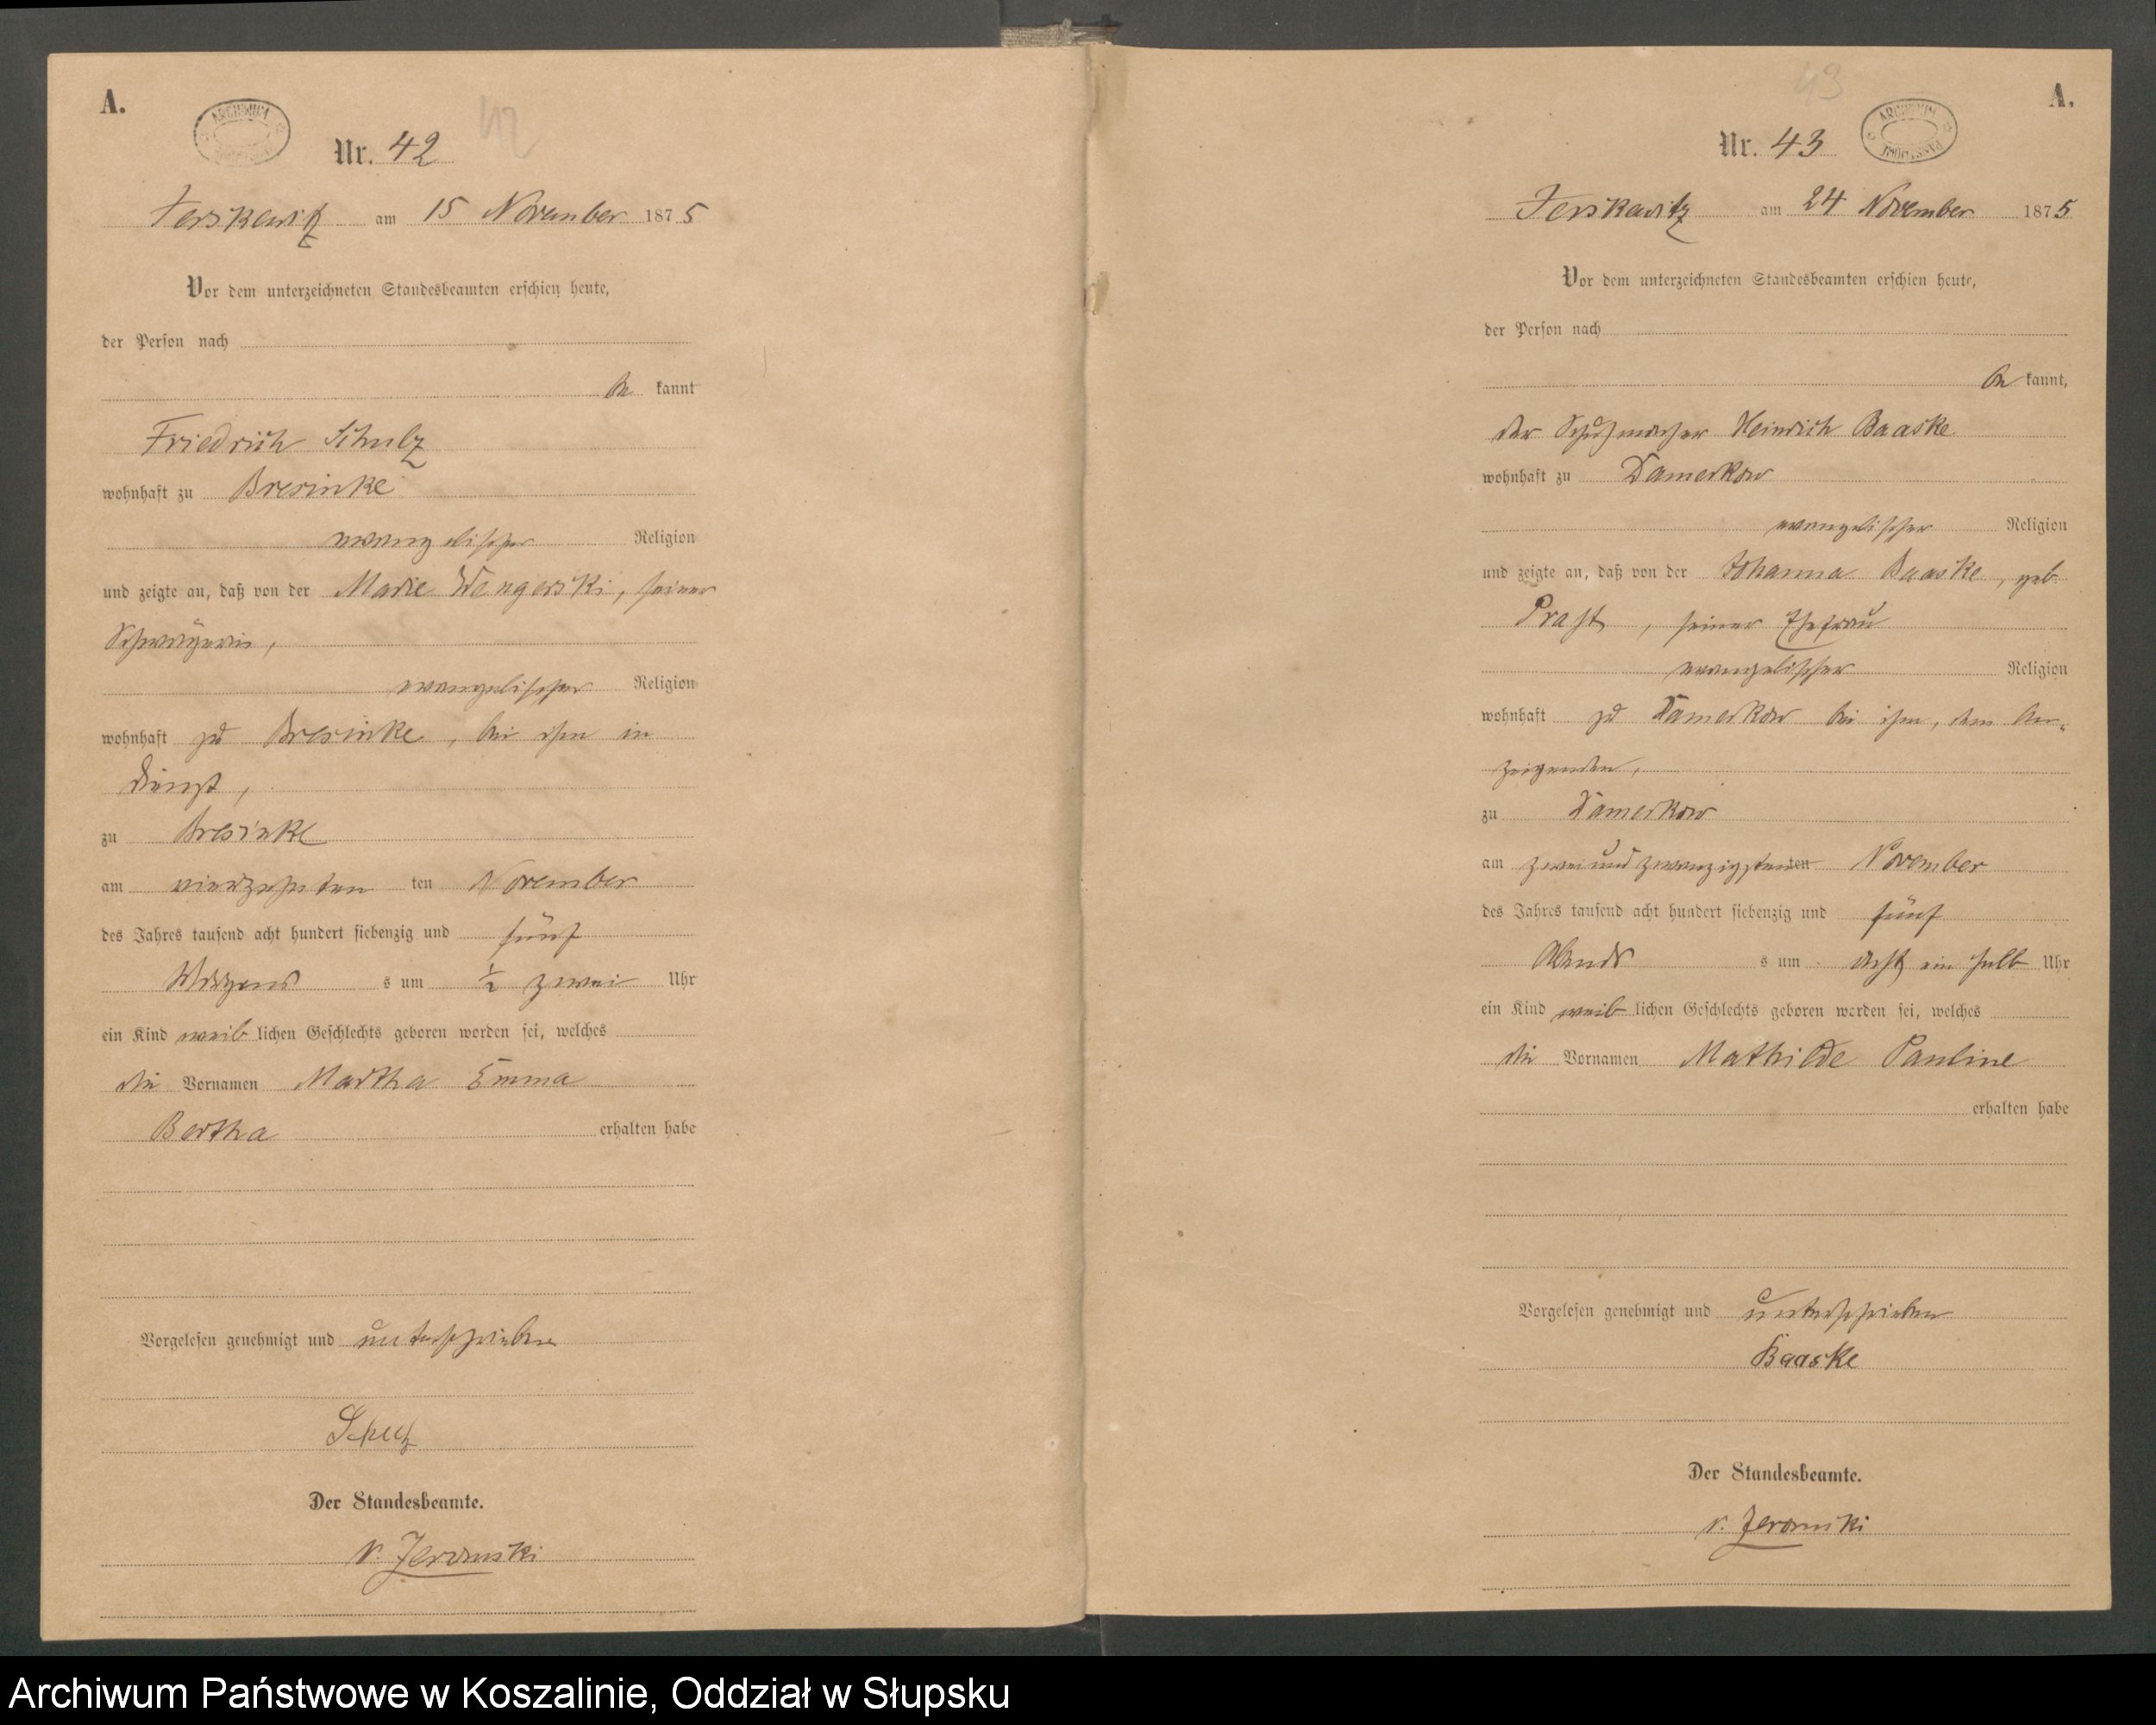 A.
ARCHIWUM
42
Nr. 42
Jerskewitz am 15 November 1875
Vor dem unterzeichneten Standesbeamten erschien heute,
der Person nach
be kannt
Friedrich Schulz
wohnhaft zu Bresinke
evangelischer Religion
und zeigte an, daß von der Marie Wengerski, seiner
Schwägerin,
evangelischer Religion
wohnhaft zu Bresinke, bei ihm in
Dienst,
zu Bresinke
am vierzehnten ten November
des Jahres tausend acht hundert siebenzig und fünf
Morgens s um ½ zwei Uhr
ein Kind weib lichen Geschlechts geboren worden sei, welches
die Vornamen Martha Emma
Bertha erhalten habe
Vorgelesen genehmigt und unterschrieben
Schulz
Der Standesbeamte.
v. Jeromski
43
A.
Nr. 43
ARCHIWUM
Jerskewitz am 24 November 1875
Vor dem unterzeichneten Standesbeamten erschien heute,
der Person nach
be kannt,
der Schuhmacher Heinrich Baaske
wohnhaft zu Damerkow
evangelischer Religion
und zeigte an, daß von der Johanna Baaske, geb.
Prast, seiner Ehefrau
evangelischer Religion
wohnhaft zu Damerkow bei ihm, dem An-
zeigenden,
zu Damerkow
am zweiundzwanzigsten ten November
des Jahres tausend acht hundert siebenzig und fünf
Abends s um acht ein halb Uhr
ein Kind weib lichen Geschlechts geboren worden sei, welches
die Vornamen Mathilde Pauline
erhalten habe
Vorgelesen genehmigt und unterschrieben
Baaske
Der Standesbeamte.
v. Jeromski
Archiwum Państwowe w Koszalinie, Oddział w Słupsku